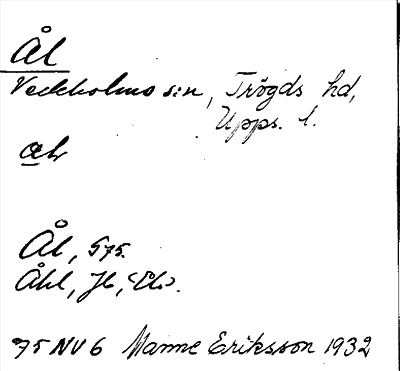 Ål
Veckholms s:n, Trögds hd,
Upps. l.
Ål, 575.
Åhl, Jb,
75 NV 6 Manne Eriksson 1932